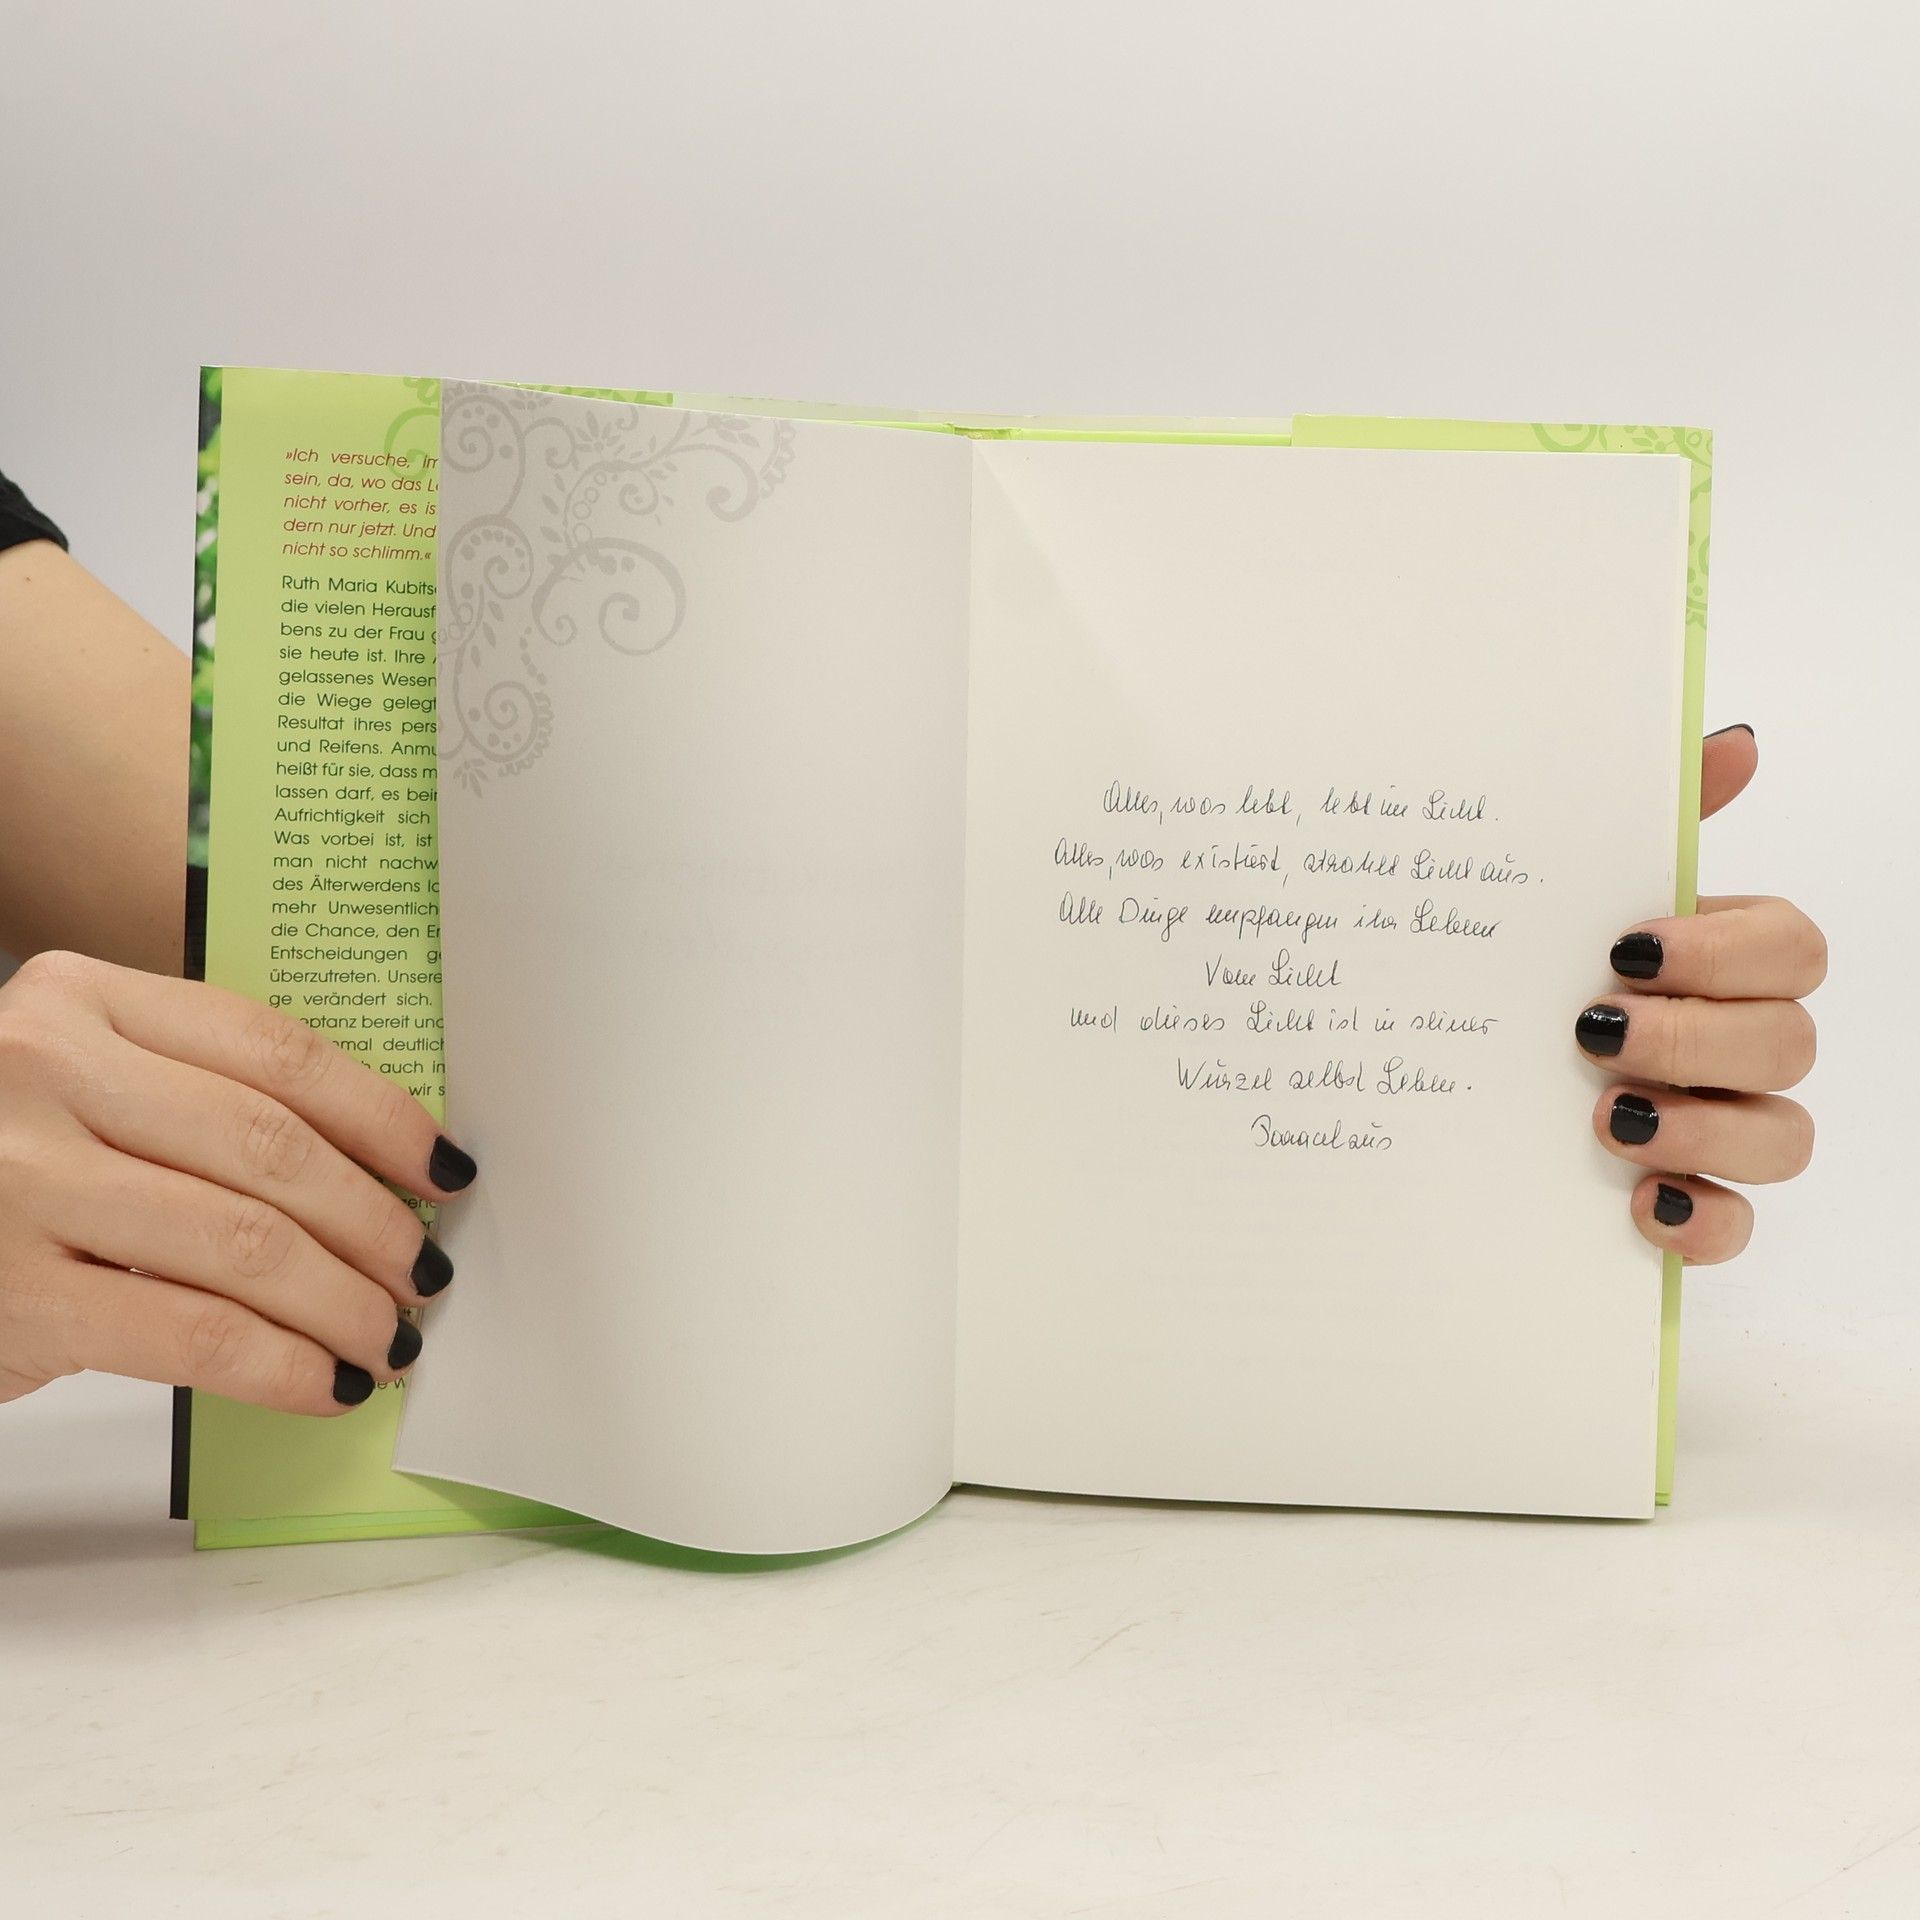 »Ich versuche, im
sein, da, wo das Le
nicht vorher, es is
dern nur jetzt. Und
nicht so schlimm.«
Ruth Maria Kubits
die vielen Herausf
bens zu der Frau g
sie heute ist. Ihre
gelassenes Wesen
die Wiege gelegt
Resultat ihres pers
und Reifens. Anmu
heißt für sie, dass m
lassen darf, es beim
Aufrichtigkeit sich
Was vorbei ist, ist
man nicht nachw
des Älterwerdens lo
mehr Unwesentlich
die Chance, den Er
Entscheidungen ge
überzutreten. Unsere
ge verändert sich.
eptanz bereit und
mal deutlich
auch in
wir s
Alles, was lebt, lebt im Licht.
Alles, was existiert, strahlt Licht aus.
Alle Dinge empfangen ihr Leben
vom Licht
und dieses Licht ist in seiner
Wurzel selbst Leben.
Paracelsus